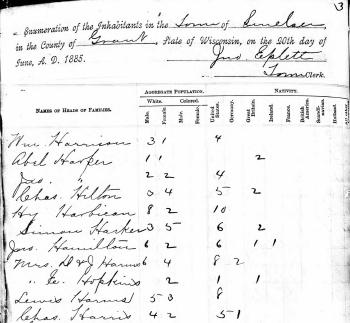 3
Enumeration of the Inhabitants in the Town of Sinclair
in the County of Grant, State of Wisconsin, on the 20th day of
June, A. D. 1885.
Jno Eplett
Town Clerk.
AGGREGATE POPULATION. NATIVITY.
White. Colored.
NAMES OF HEADS OF FAMILIES. Male. Female. Male. Female. United States. Germany. Great Britain. Ireland. France. British America. Scandinavia. Holland.
Wm Harrison 3 1 4
Abel Harper 1 1 2
Jas " 2 2 4
Chas. Hilton 3 4 5 2
Hy 8 2 10
Simon Harker 3 5 6 2
Jos. Hamilton 6 2 6 1 1
Mrs. D & J Harms 6 4 8 2
" E. Hopkins 2 1 1
Lewis Harms 5 3 8
Chas Harris 4 2 5 1